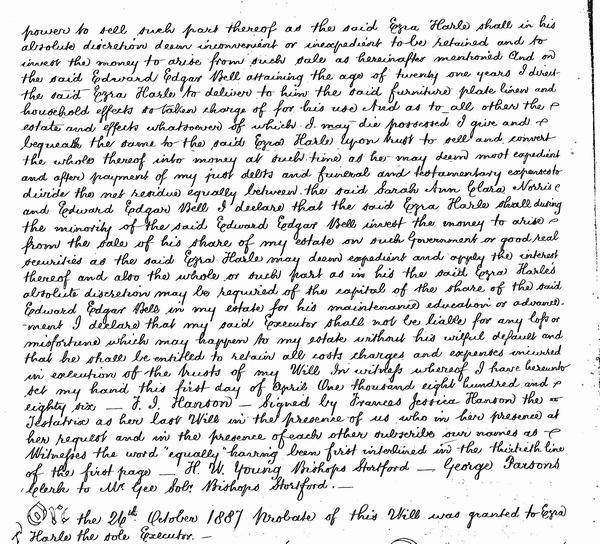 power to sell such part thereof as the said Ezra Harle shall in his
absolute discretion deem inconvenient or inexpedient to be retained and to
invest the money to arise from such sale as hereinafter mentioned And on
the said Edward Edgar Bell attaining the age of twenty one years I direct
the said Ezra Harle to deliver to him the said furniture plate linen and
household effects so taken charge of for his use And as to all other the
estate and effects whatsoever of which I may die possessed I give and
bequeath the same to the said Ezra Harle upon trust to sell and convert
the whole thereof into money at such time as he may deem most expedient
and after payment of my just debts and funeral and testamentary expenses to
divide the net residue equally between the said Sarah Ann Clara Norris
and Edward Edgar Bell I declare that the said Ezra Harle shall during
the minority of the said Edward Edgar Bell invest the money to arise
from the sale of his share of my estate on such Government or good real
securities as the said Ezra Harle may deem expedient and apply the interest
thereof and also the whole or such part as in his the said Ezra Harle's
absolute discretion may be required of the capital of the share of the said
Edward Edgar Bell in my estate for his maintenance education or advance-
-ment I declare that my said Executor shall not be liable for any loss or
misfortune which may happen to my estate without his wilful default and
that he shall be entitled to retain all costs charges and expenses incurred
in execution of the trusts of my Will In witness whereof I have hereunto
set my hand this first day of April One thousand eight hundred and
eighty six — F. J. Hanson — Signed by Frances Jessica Hanson the
Testatrix as her last Will in the presence of us who in her presence at
her request and in the presence of each other subscribe our names as
Witnesses the word "equally" having been first interlined in the thirtieth line
of the first page — H. W. Young Bishops Stortford — George Parsons
Clerk to Mr Gee Solr. Bishops Stortford. —
On the 26th October 1887 Probate of this Will was granted to Ezra
Harle the sole Executor. —